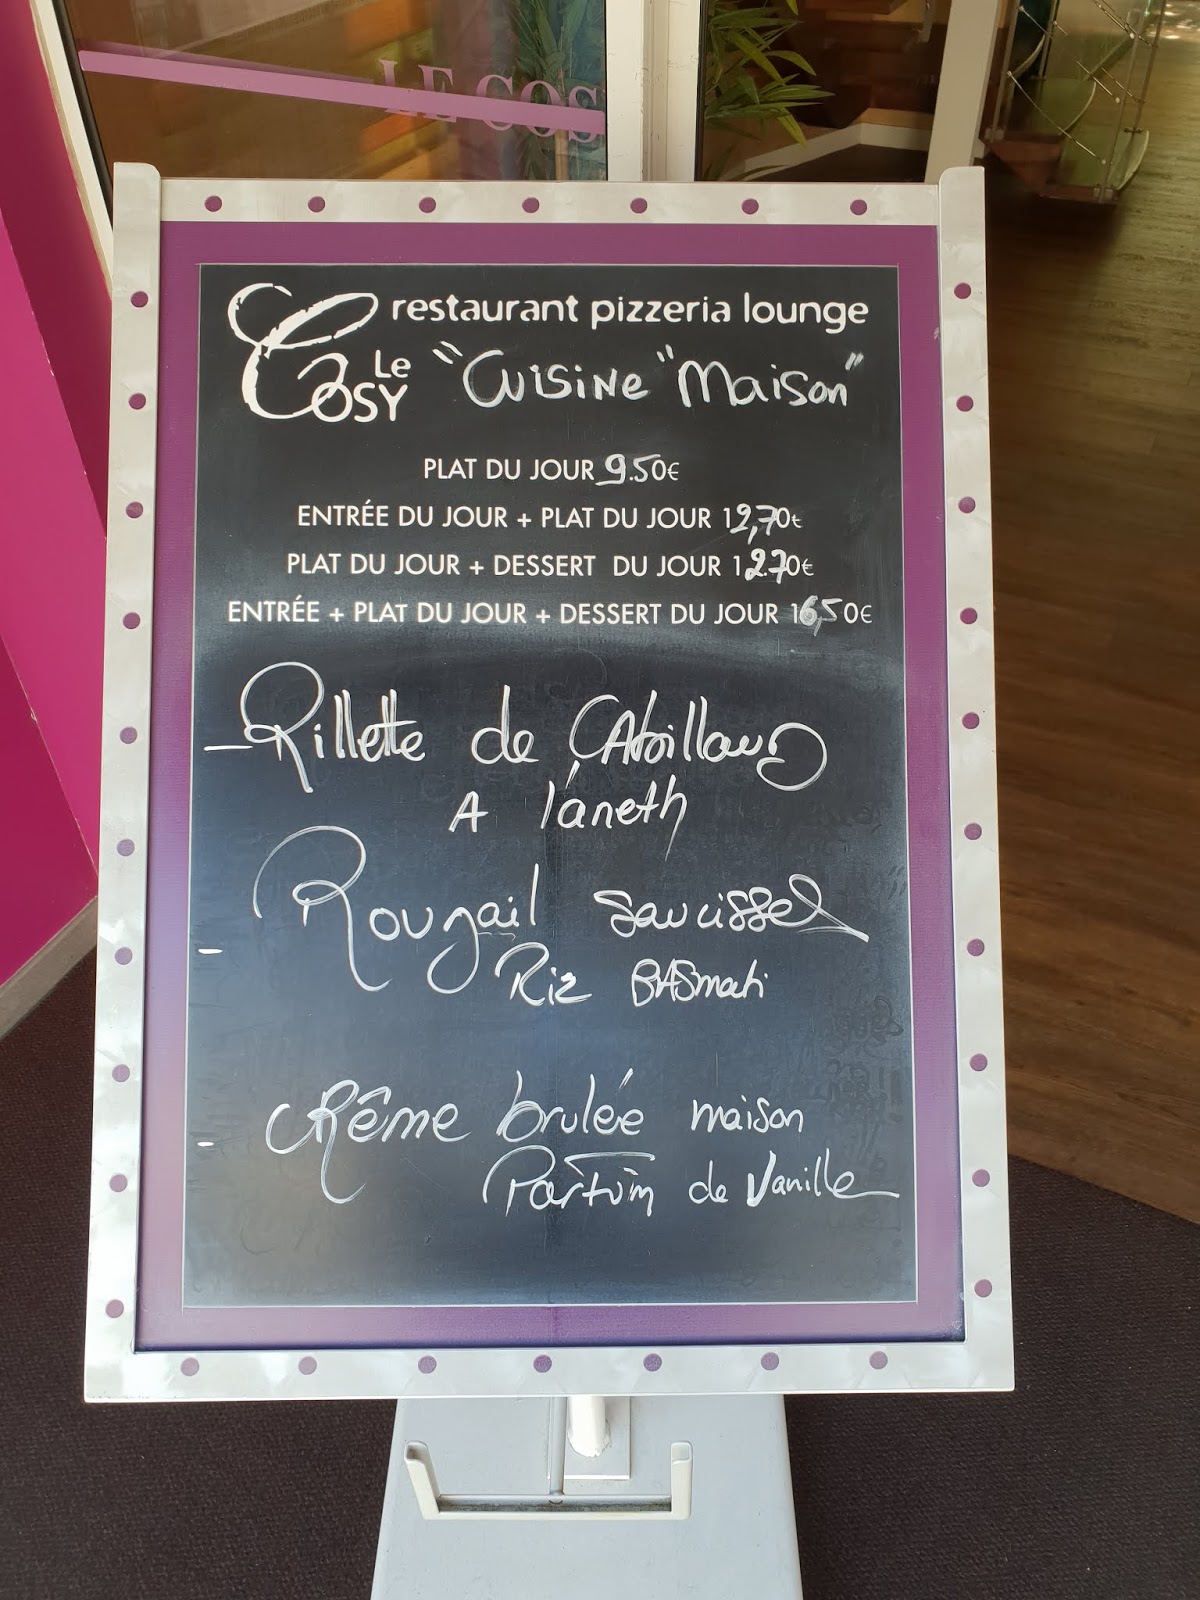 LE COS
restaurant pizzeria lounge
Le Cosy "Cuisine" "Maison"
PLAT DU JOUR 9.50€
ENTRÉE DU JOUR + PLAT DU JOUR 12,70€
PLAT DU JOUR + DESSERT DU JOUR 12.70€
ENTRÉE + PLAT DU JOUR + DESSERT DU JOUR 16,50€
- Rillette de CAbillaud
A l'aneth
- Rougail saucisses
Riz BASmati
- CRême brulée maison
Parfum de Vanille